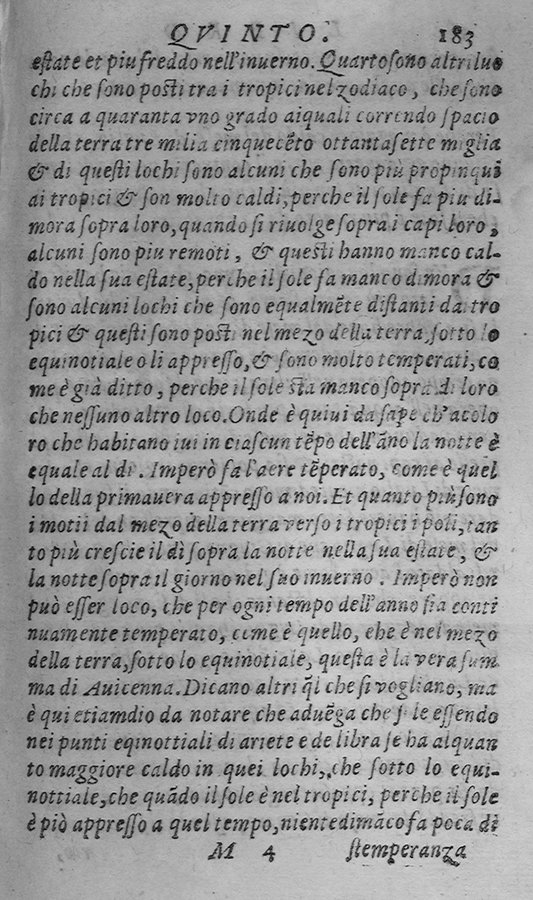 QVINTO. 183
estate et piu freddo nell'inuerno. Quarto sono altri luo
chi che sono posti tra i tropici nel zodiaco, che sono
circa a quaranta vno grado aiquali correndo spacio
della terra tre milia cinquecẽto ottantasette miglia
& di questi lochi sono alcuni che sono più propinqui
ai tropici & son molto caldi, perche il sole fa piu di-
mora sopra loro, quando si riuolge sopra i capi loro,
alcuni sono piu remoti, & questi hanno manco cal-
do nella sua estate, perche il sole fa manco dimora &
sono alcuni lochi che sono equalmẽte distanti da tro
pici & questi sono posti nel mezo della terra sotto lo
equinotiale o li appresso, & sono molto temperati, co
me è già ditto, perche il sole sta manco sopra di loro
che nessuno altro loco. Onde è quiui da sape ch'acolo
ro che habitano iui in ciascun tẽpo dell'ãno la notte è
equale al di. Imperò fa l'aere tẽperato, come è quel
lo della primauera appresso a noi. Et quanto più sono
i motii dal mezo della terra verso i tropici i poli, tan
to più crescie il dì sopra la notte nella sua estate, &
la notte sopra il giorno nel suo inuerno. Imperò non
può esser loco, che per ogni tempo dell'anno sia conti
nuamente temperato, come è quello, ehe è nel mezo
della terra, sotto lo equinotiale, questa è la vera sum
ma di Auicenna. Dicano altri q̃l che si vogliano, ma
è qui etiamdio da notare che aduẽga che sole essendo
nei punti eqinottiali di ariete e de libra se ha alquan
to maggiore caldo in quei lochi, che sotto lo equi-
nottiale, che quãdo il sole è nel tropici, perche il sole
è piò appresso a quel tempo, nientedimãco fa poca di
M 4 stemperanza